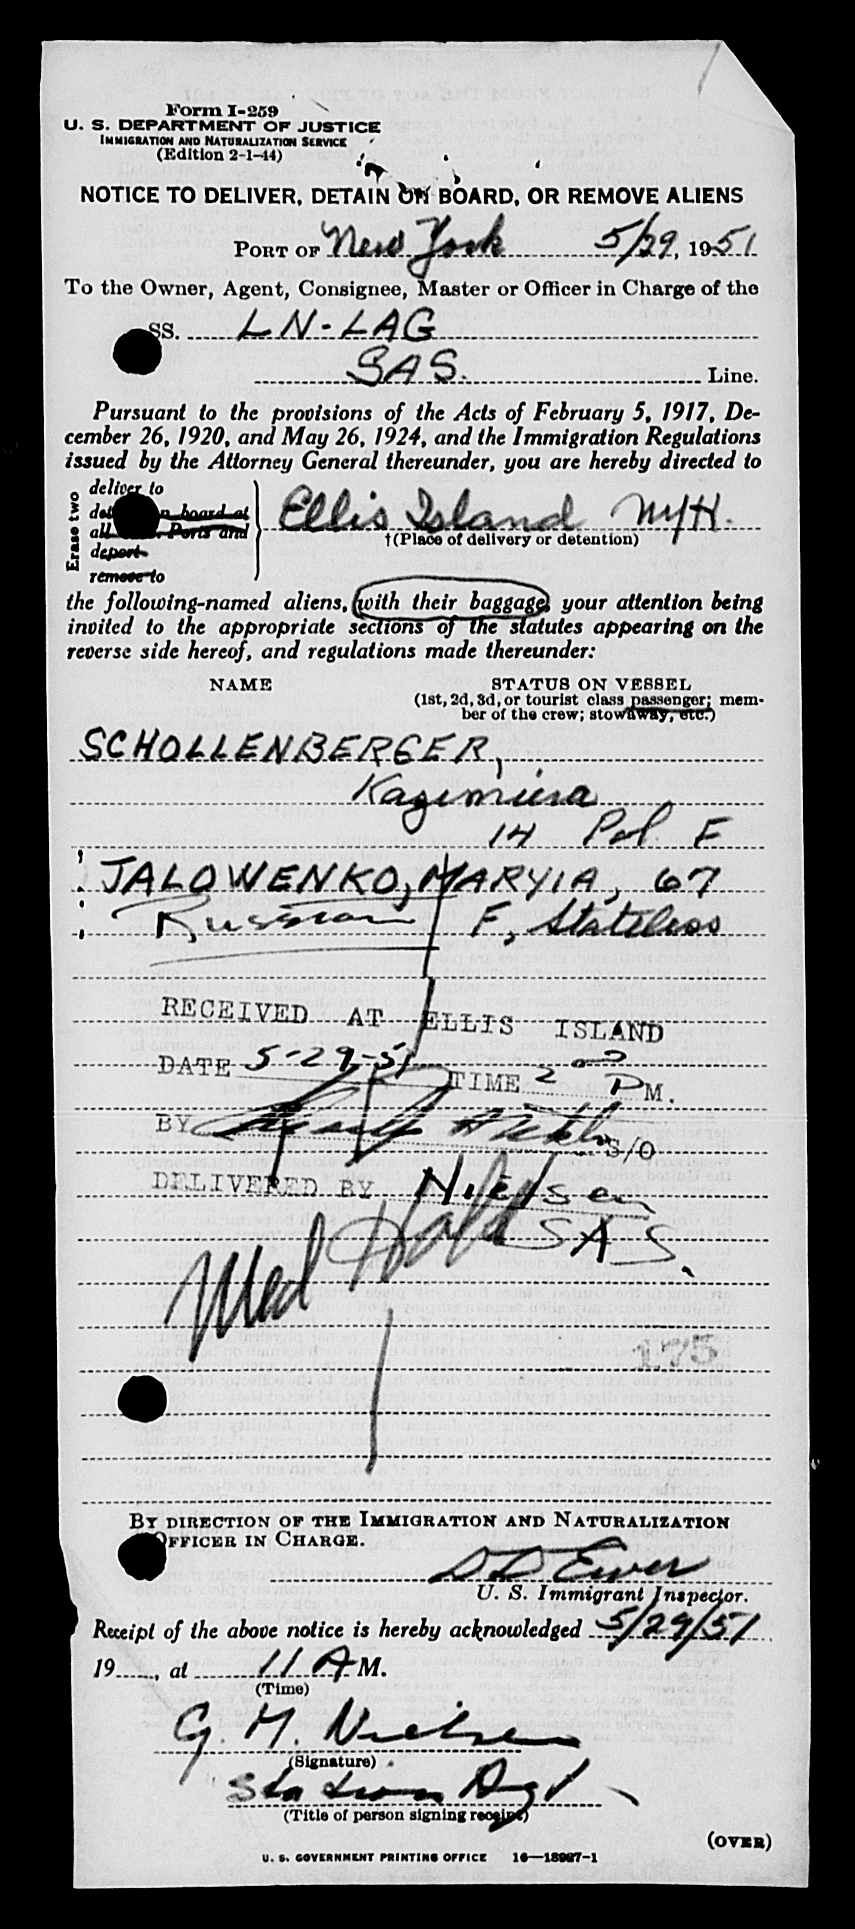 Form I-259
U. S. DEPARTMENT OF JUSTICE
IMMIGRATION AND NATURALIZATION SERVICE
(Edition 2-1-44)
NOTICE TO DELIVER, DETAIN ON BOARD, OR REMOVE ALIENS
PORT OF New York 5/29, 1951
To the Owner, Agent, Consignee, Master or Officer in Charge of the
SS. LN-LAG
SAS. Line.
Pursuant to the provisions of the Acts of February 5, 1917, De-
cember 26, 1920, and May 26, 1924, and the Immigration Regulations
issued by the Attorney General thereunder, you are hereby directed to
Erase two
deliver to
on board at
Ports and
deport
remove to
Ellis Island NYH.
†(Place of delivery or detention)
the following-named aliens, with their baggage, your attention being
invited to the appropriate sections of the statutes appearing on the
reverse side hereof, and regulations made thereunder:
NAME STATUS ON VESSEL
(1st, 2d, 3d, or tourist class passenger; mem-
ber of the crew; stowaway, etc.)
SCHOLLENBERGER,
Kazimiera
14 Pol. F
JALOWENKO, MARYIA, 67
Russian F, Stateless
RECEIVED AT ELLIS ISLAND
DATE 5-29-51 TIME 2 00 P M.
BY S/O
DELIVERED BY Nielsen
SAS.
Med Hold
175
BY DIRECTION OF THE IMMIGRATION AND NATURALIZATION
OFFICER IN CHARGE.
D D Ewer
U. S. Immigrant Inspector.
Receipt of the above notice is hereby acknowledged 5/29/51
19___, at 11 A M.
(Time)
G. M. Nielsen
(Signature)
Station Agt
(Title of person signing receipt)
(OVER)
U. S. GOVERNMENT PRINTING OFFICE 16—18987-1